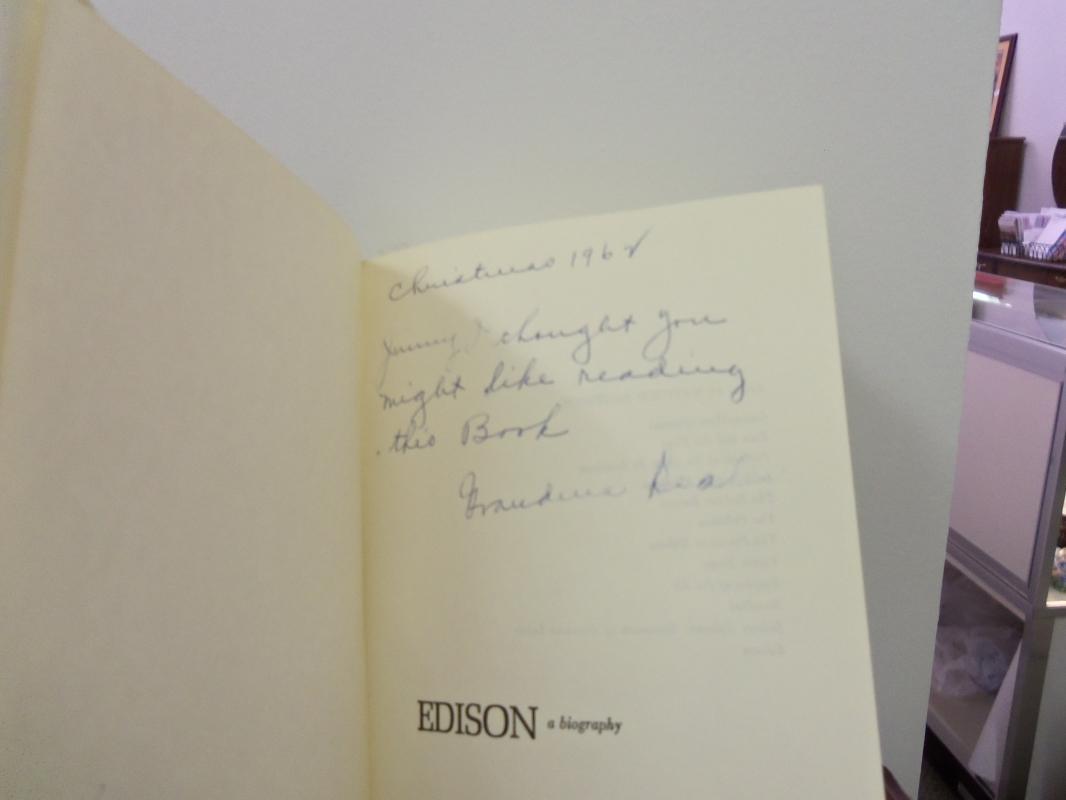 Christmas 1962
Jimmy I thought you
might like reading
this Book
Grandma
EDISON a biography